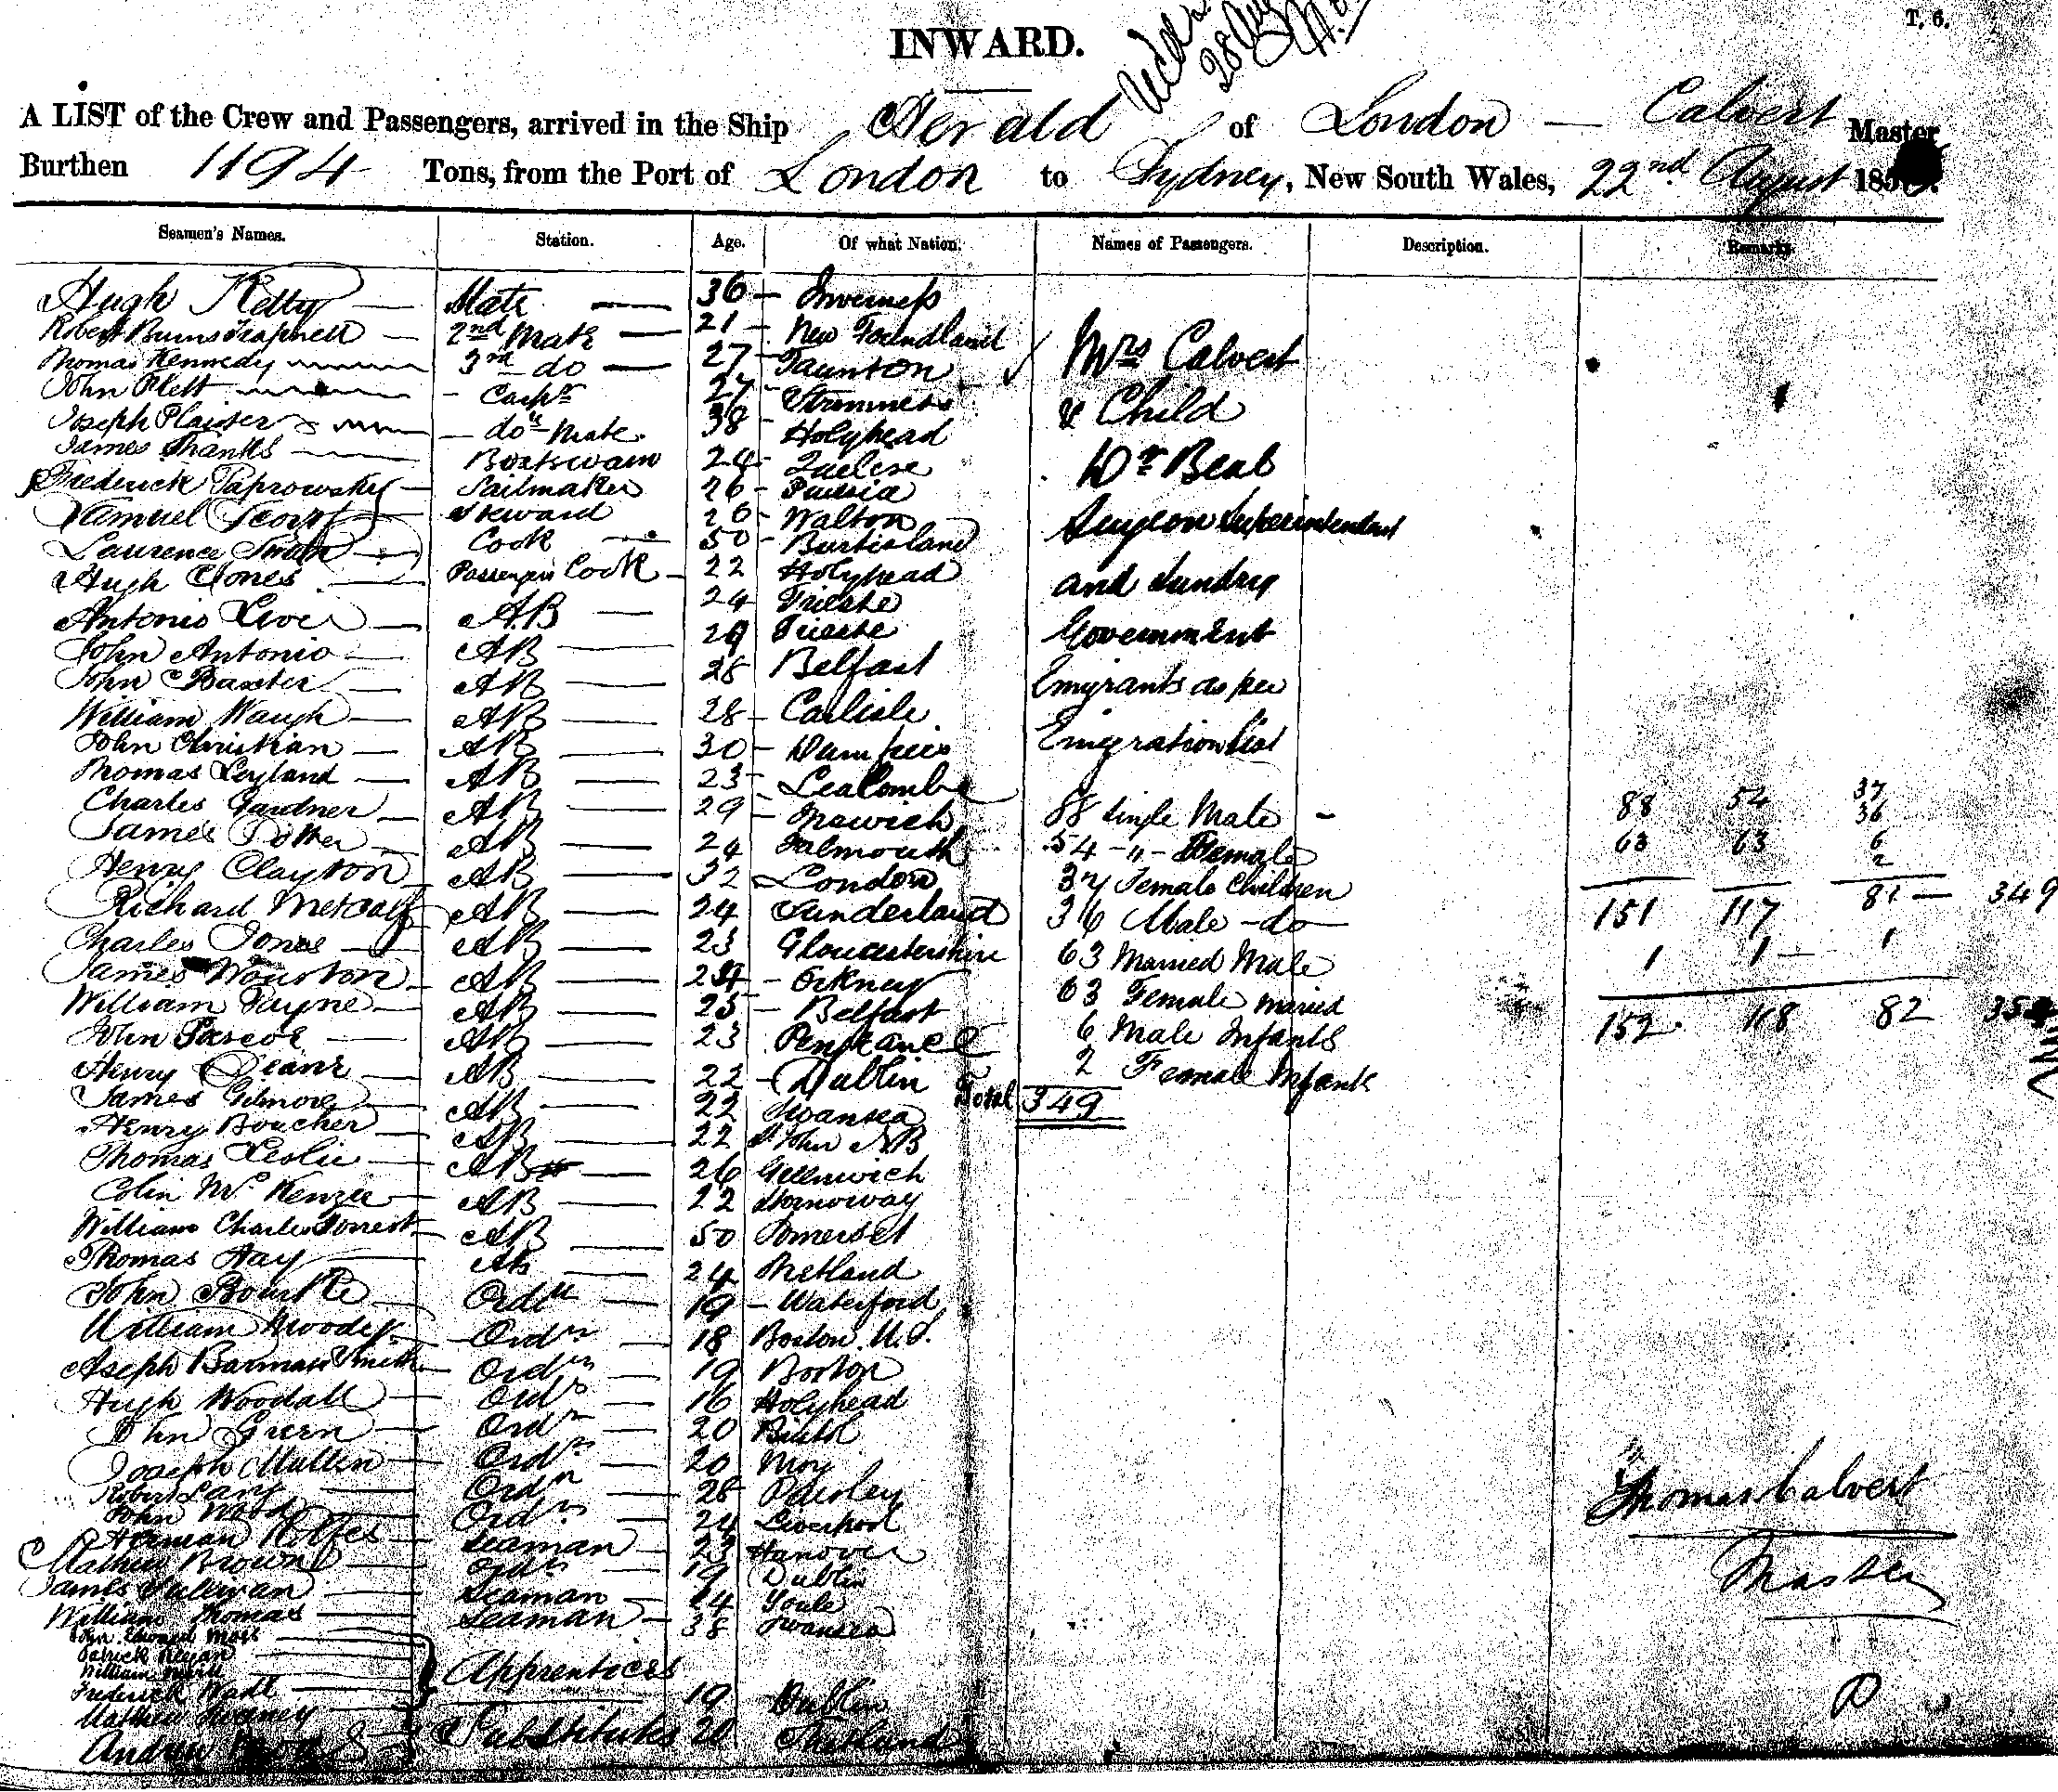 INWARD.
T. 6.
28 Aug
A LIST of the Crew and Passengers, arrived in the Ship Herald of London — Calvert Master
Burthen 1194 Tons, from the Port of London to Sydney, New South Wales, 22nd August 185
Seamen's Names. Station. Age. Of what Nation. Names of Passengers. Description. Remarks.
Hugh Kelly — Mate — 36 — Inverness
Robert Burns Trapnell — 2nd Mate — 21 — New Foundland
Thomas Kennedy 3rd do — 27 — Taunton Mrs Calvert
John Plett — Carpr 27 Stromness & Child
Joseph — dos Mate 38 Holyhead
James Shanks — Boatswain 24 Dr Beal
Frederick Paprowsky — Sailmaker 26 — Prussia
Samuel Scott — Steward 26 — Walton Surgeon Superintendant
Laurence Swan — Cook 50 — Burtisland
Hugh Jones — Passengers Cook — 22 Holyhead and Sundry
Antonio — A.B — 24 Trieste
John Antonio — AB — 29 Trieste Government
John Baxter — AB — 28 Belfast
William Waugh — AB — 28 — Carlisle Emigrants as per
John Christian — AB — 30 — Dumfries Emigration List
Thomas Leyland — AB — 23
Charles Gardner — AB — 29 — 88 Single Male — 88 54 37
36
James Potter — AB — 24 Falmouth 54 -"- Female 63 63 6
2
Henry Clayton — AB — 32 — London 37 Female Children
Richard Metcalf — AB — 24 Sunderland 36 Male — do — 151 117 81 — 349
Charles Jones — AB — 23 Gloucestershire 63 Married Male 1 1 — 1
James Wourston — AB — 24 — Orkney 63 Female married
William Payne — AB — 25 — Belfast 6 Male Infants 152 118 82
John Pascoe — AB — 23 Penzance 2 Female Infants
Henry Deans — AB — 22 — Dublin Total 349
James Gilmore — AB — 22 Swansea
Henry Boucher — AB — 22 St John NB
Thomas Leslie — AB — 26 Greenwich
Colin Mc Kenzie — AB — 22 Stornoway
William Charles Forrest — AB — 50 Somerset
Thomas Hay — AB — 24 Shetland
John Bourke — Ordy — 19 — Waterford
William Moody — Ordy — 18 Boston U.S.
Joseph Barman Smith — Ordy — 19 Boston
Hugh Woodall — Ordy — 16 Holyhead
John Green — Ordy — 20 Bristol
Joseph Mullen — Ordy — 20 Moy
Robert Lang — Ordy — 28 Paisley
John Wood — Ordy — 24 Liverpool
Herman Rolfes — Seaman — 23 Hanover
Mathew Brown — Ordy — 19 Dublin
James Sullivan — Seaman — 24
William Thomas — Seaman — 38 Swansea
John Edward Moss
Patrick Regan
William
Frederick Wade — Apprentices
Matthew Sweeney — 19 Dublin
Andrew — Substitutes 20 Shetland
Thomas Calvert
Master